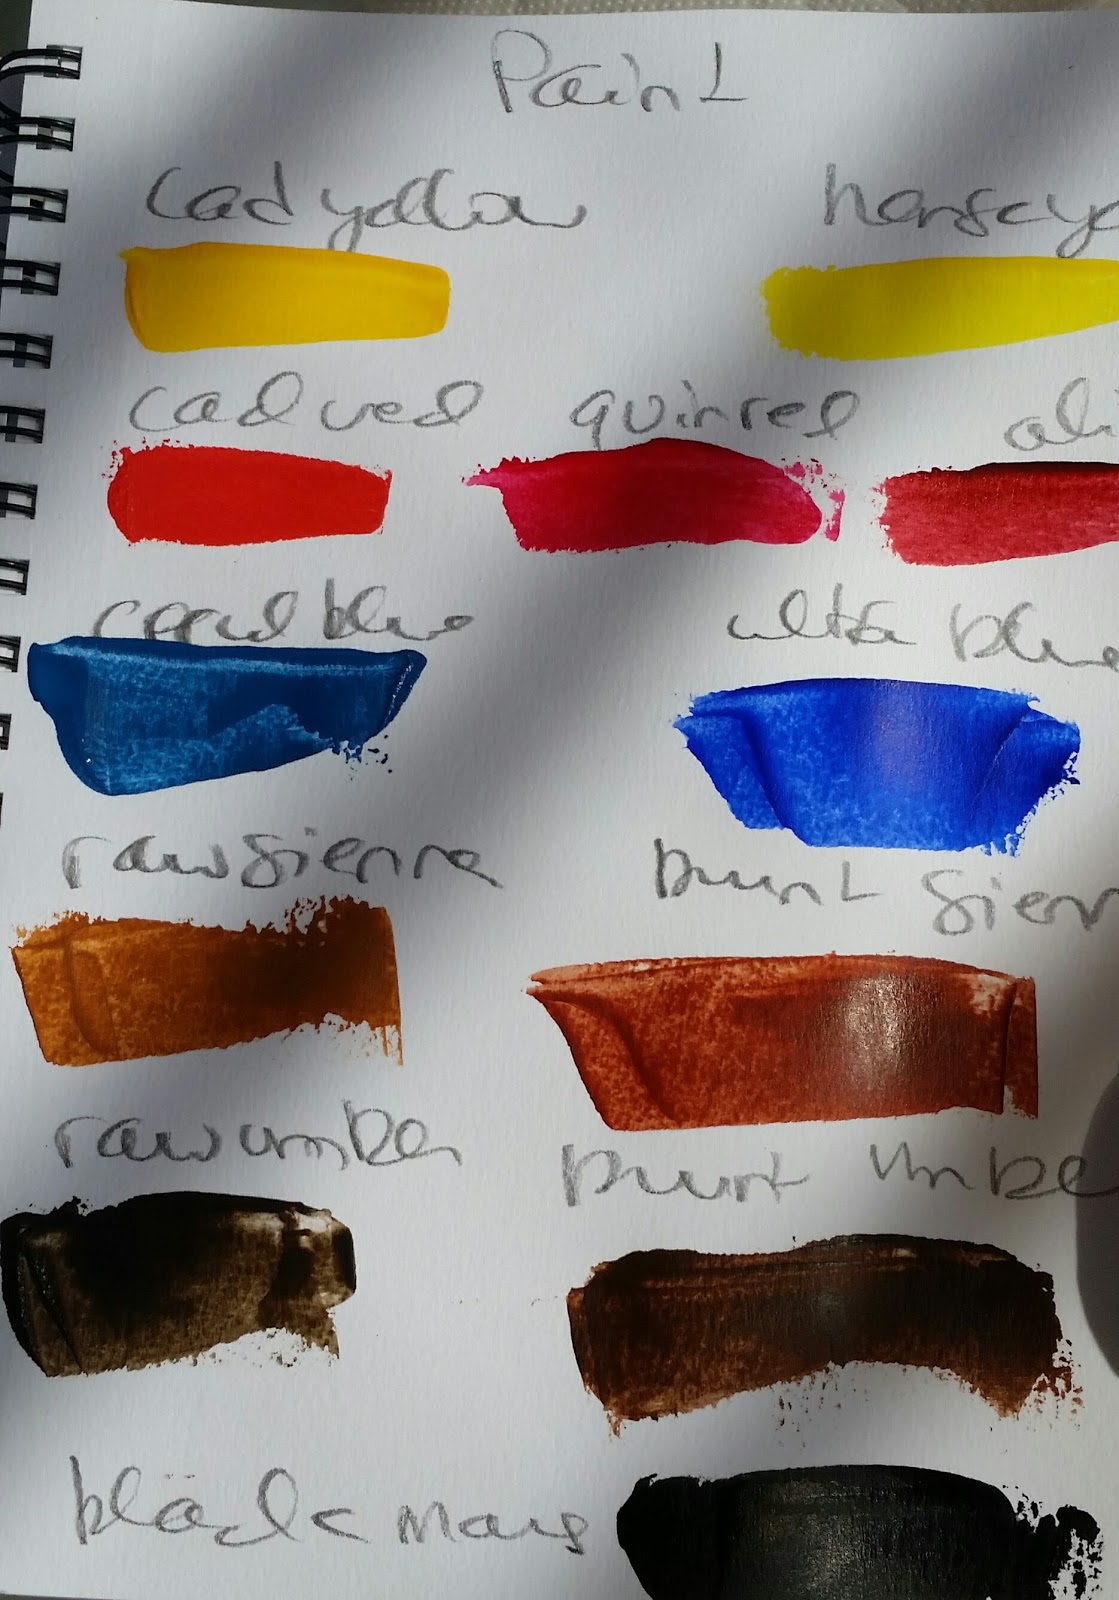 Paint
cad yellow hansa ye
cad red quin red ali
ultra blue
raw sienna burnt sien
raw umber burnt umbe
black mars